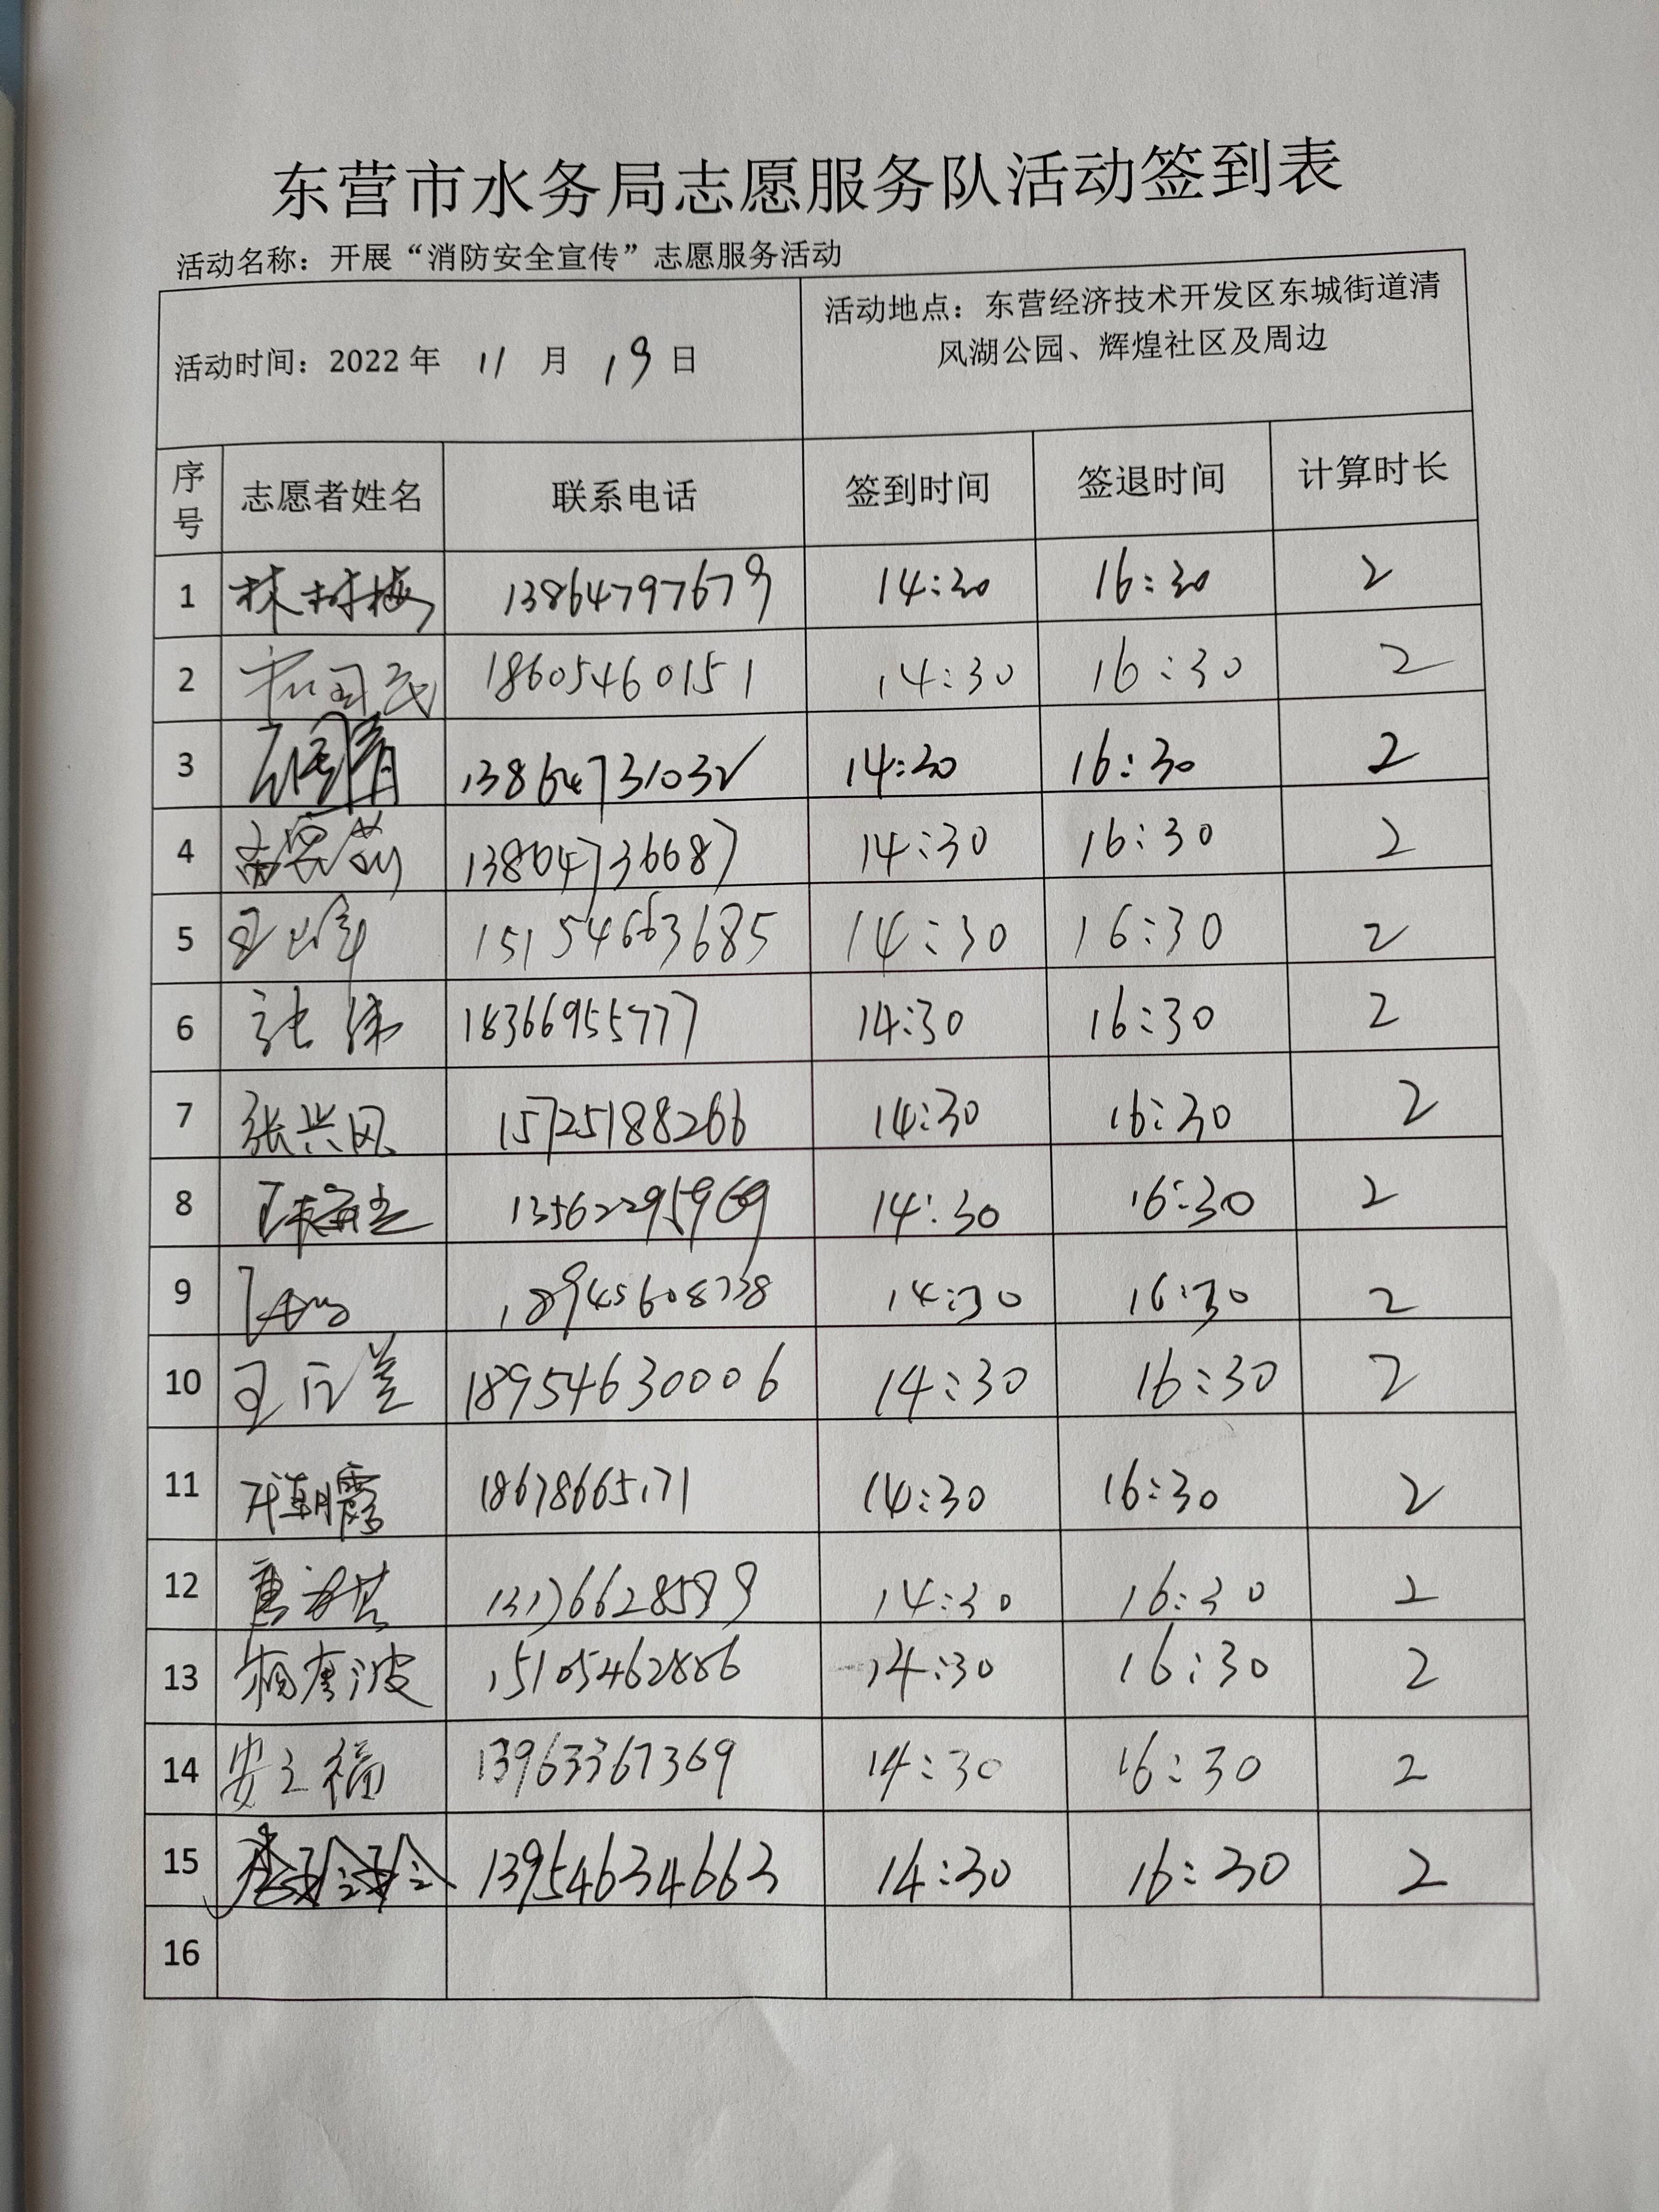 东营市水务局志愿服务队活动签到表
活动名称：开展“消防安全宣传”志愿服务活动
活动时间：2022 年 11 月 19 日
活动地点：东营经济技术开发区东城街道清
风湖公园、辉煌社区及周边
序号 志愿者姓名 联系电话 签到时间 签退时间 计算时长
1 林树梅 13864797679 14:30 16:30 2
2 18605460151 14:30 16:30 2
3 13864731032 14:30 16:30 2
4 14:30 16:30 2
5 15154663685 14:30 16:30 2
6 张伟 18366955777 14:30 16:30 2
7 张兴国 15725188266 14:30 16:30 2
8 13562295969 14:30 16:30 2
9 18945608738 14:30 16:30 2
10 18954630006 14:30 16:30 2
11 朝露 18678665171 14:30 16:30 2
12 14:30 16:30 2
13 15105462886 14:30 16:30 2
14 安立福 13963367369 14:30 16:30 2
15 李玲玲 13954634663 14:30 16:30 2
16